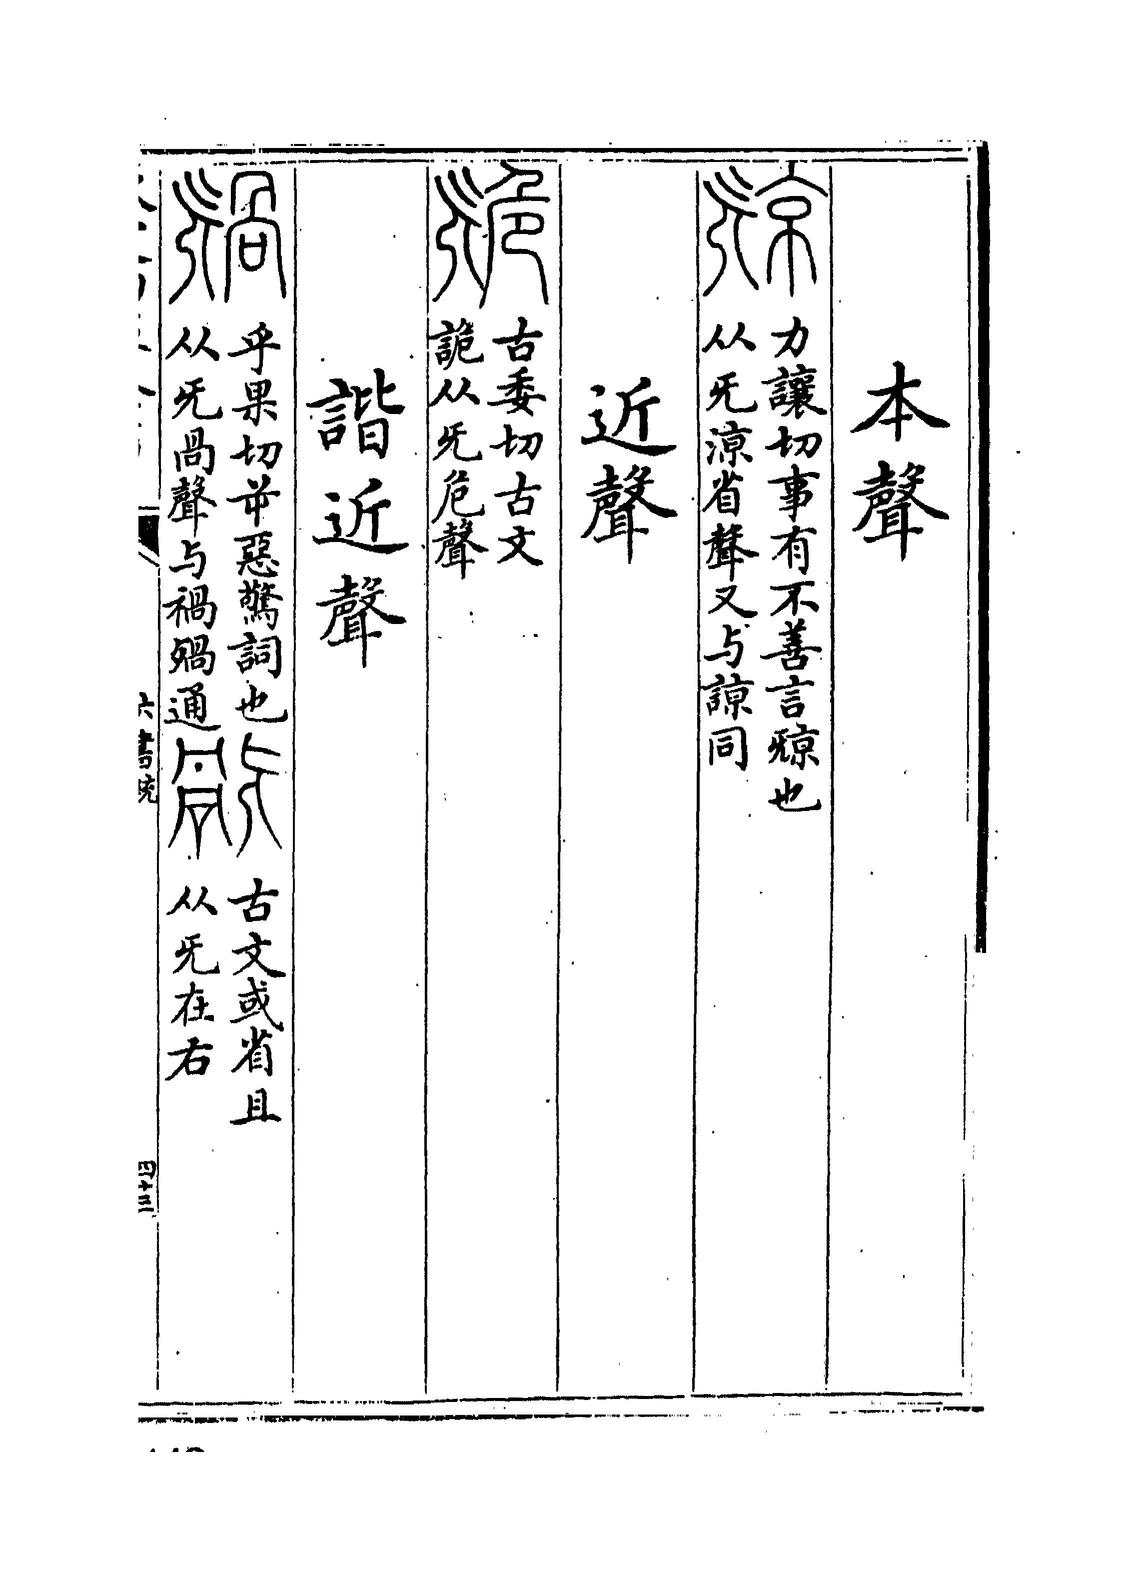 本聲
力讓切事有不善言㹁也
从旡涼省聲又与諒同
近聲
古委切古文
詭从旡危聲
諧近聲
乎果切屰惡驚詞也
从旡咼聲与禍𣨴通
古文或省且
从旡在右
六書統
四十三